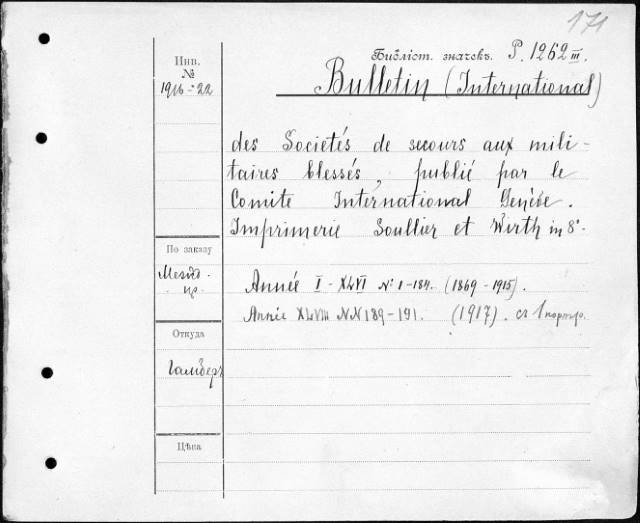 171
Инв.
№
1916-22
Библіот. значекъ. P. 1262 III.
Bulletin (International)
des Societés de secours aux mili-
taires blessés, publié par le
Comite International Genève.
Imprimerie Soullier et Wirth in 8°.
По заказу
Année I - XLVI №: 1-184. (1869-1915).
Année XLVIII NN 189-191. (1917). съ 1 портр.
Откуда
Цѣна